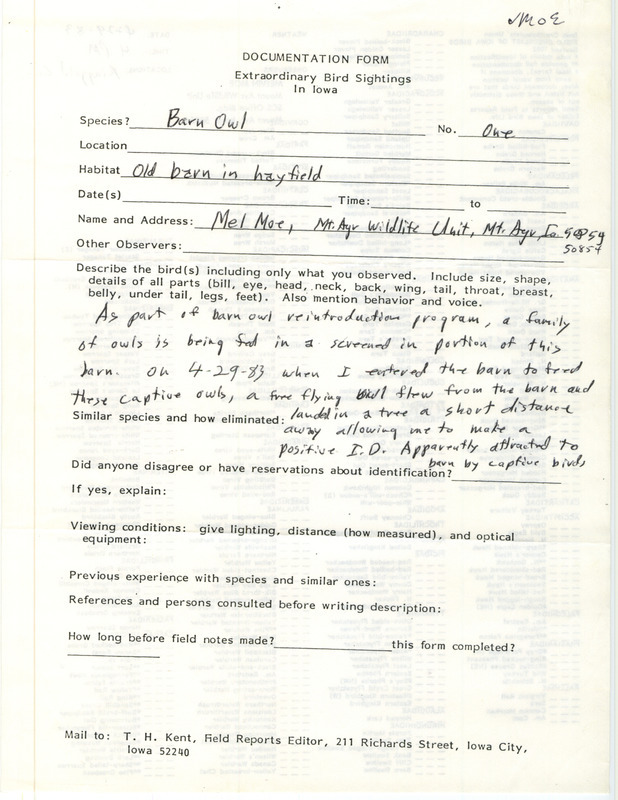 JMOE
DOCUMENTATION FORM
Extraordinary Bird Sightings
In Iowa
Species? Barn Owl No. One
Location
Habitat Old barn in hayfield
Date(s) Time: to
Name and Address: Mel Moe, Mt. Ayr Wildlife Unit, Mt. Ayr, Ia.
50854
Other Observers:
Describe the bird(s) including only what you observed. Include size, shape,
details of all parts (bill, eye, head, neck, back, wing, tail, throat, breast,
belly, under tail, legs, feet). Also mention behavior and voice.
As part of barn owl reintroduction program, a family
of owls is being fed in a screened in portion of this
barn. On 4-29-83 when I entered the barn to feed
these captive owls, a free flying owl flew from the barn and
Similar species and how eliminated: landed in a tree a short distance
away allowing me to make a
positive I.D. Apparently attracted to
barn by captive birds
Did anyone disagree or have reservations about identification?
If yes, explain:
Viewing conditions: give lighting, distance (how measured), and optical
equipment:
Previous experience with species and similar ones:
References and persons consulted before writing description:
How long before field notes made? this form completed?
Mail to: T. H. Kent, Field Reports Editor, 211 Richards Street, Iowa City,
Iowa 52240